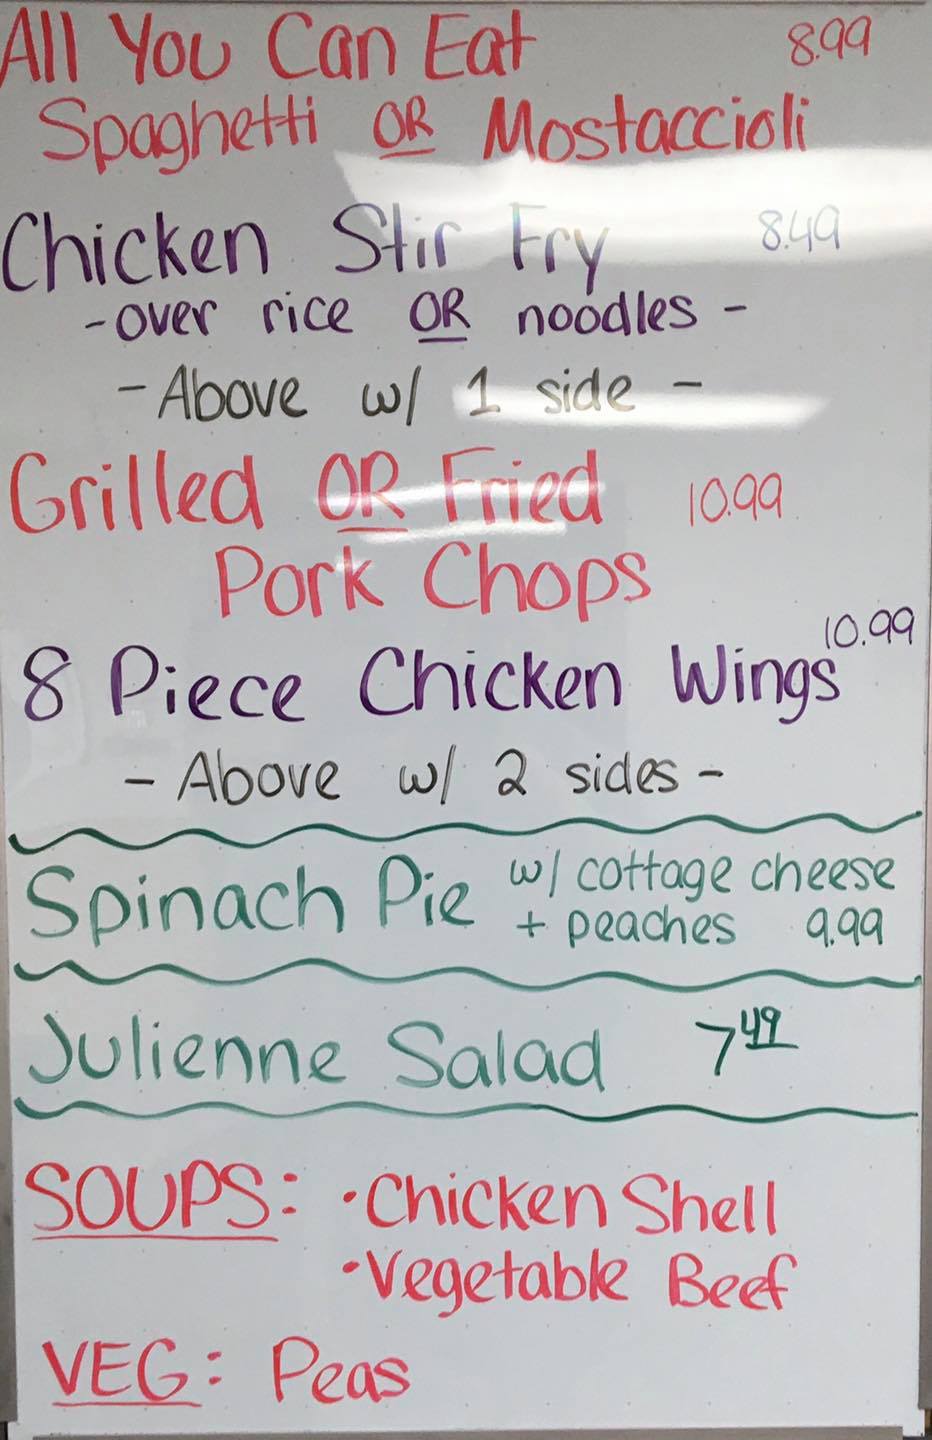 All You Can Eat 8.99
Spaghetti OR Mostaccioli
Chicken Stir Fry 8.49
-over rice OR noodles -
- Above w/ 1 side -
Grilled OR Fried 10.99
Pork Chops
8 Piece Chicken Wings 10.99
- Above w/ 2 sides -
Spinach Pie w/ cottage cheese
+ peaches 9.99
Julienne Salad 7 49
SOUPS: • Chicken Shell
• Vegetable Beef
VEG: Peas